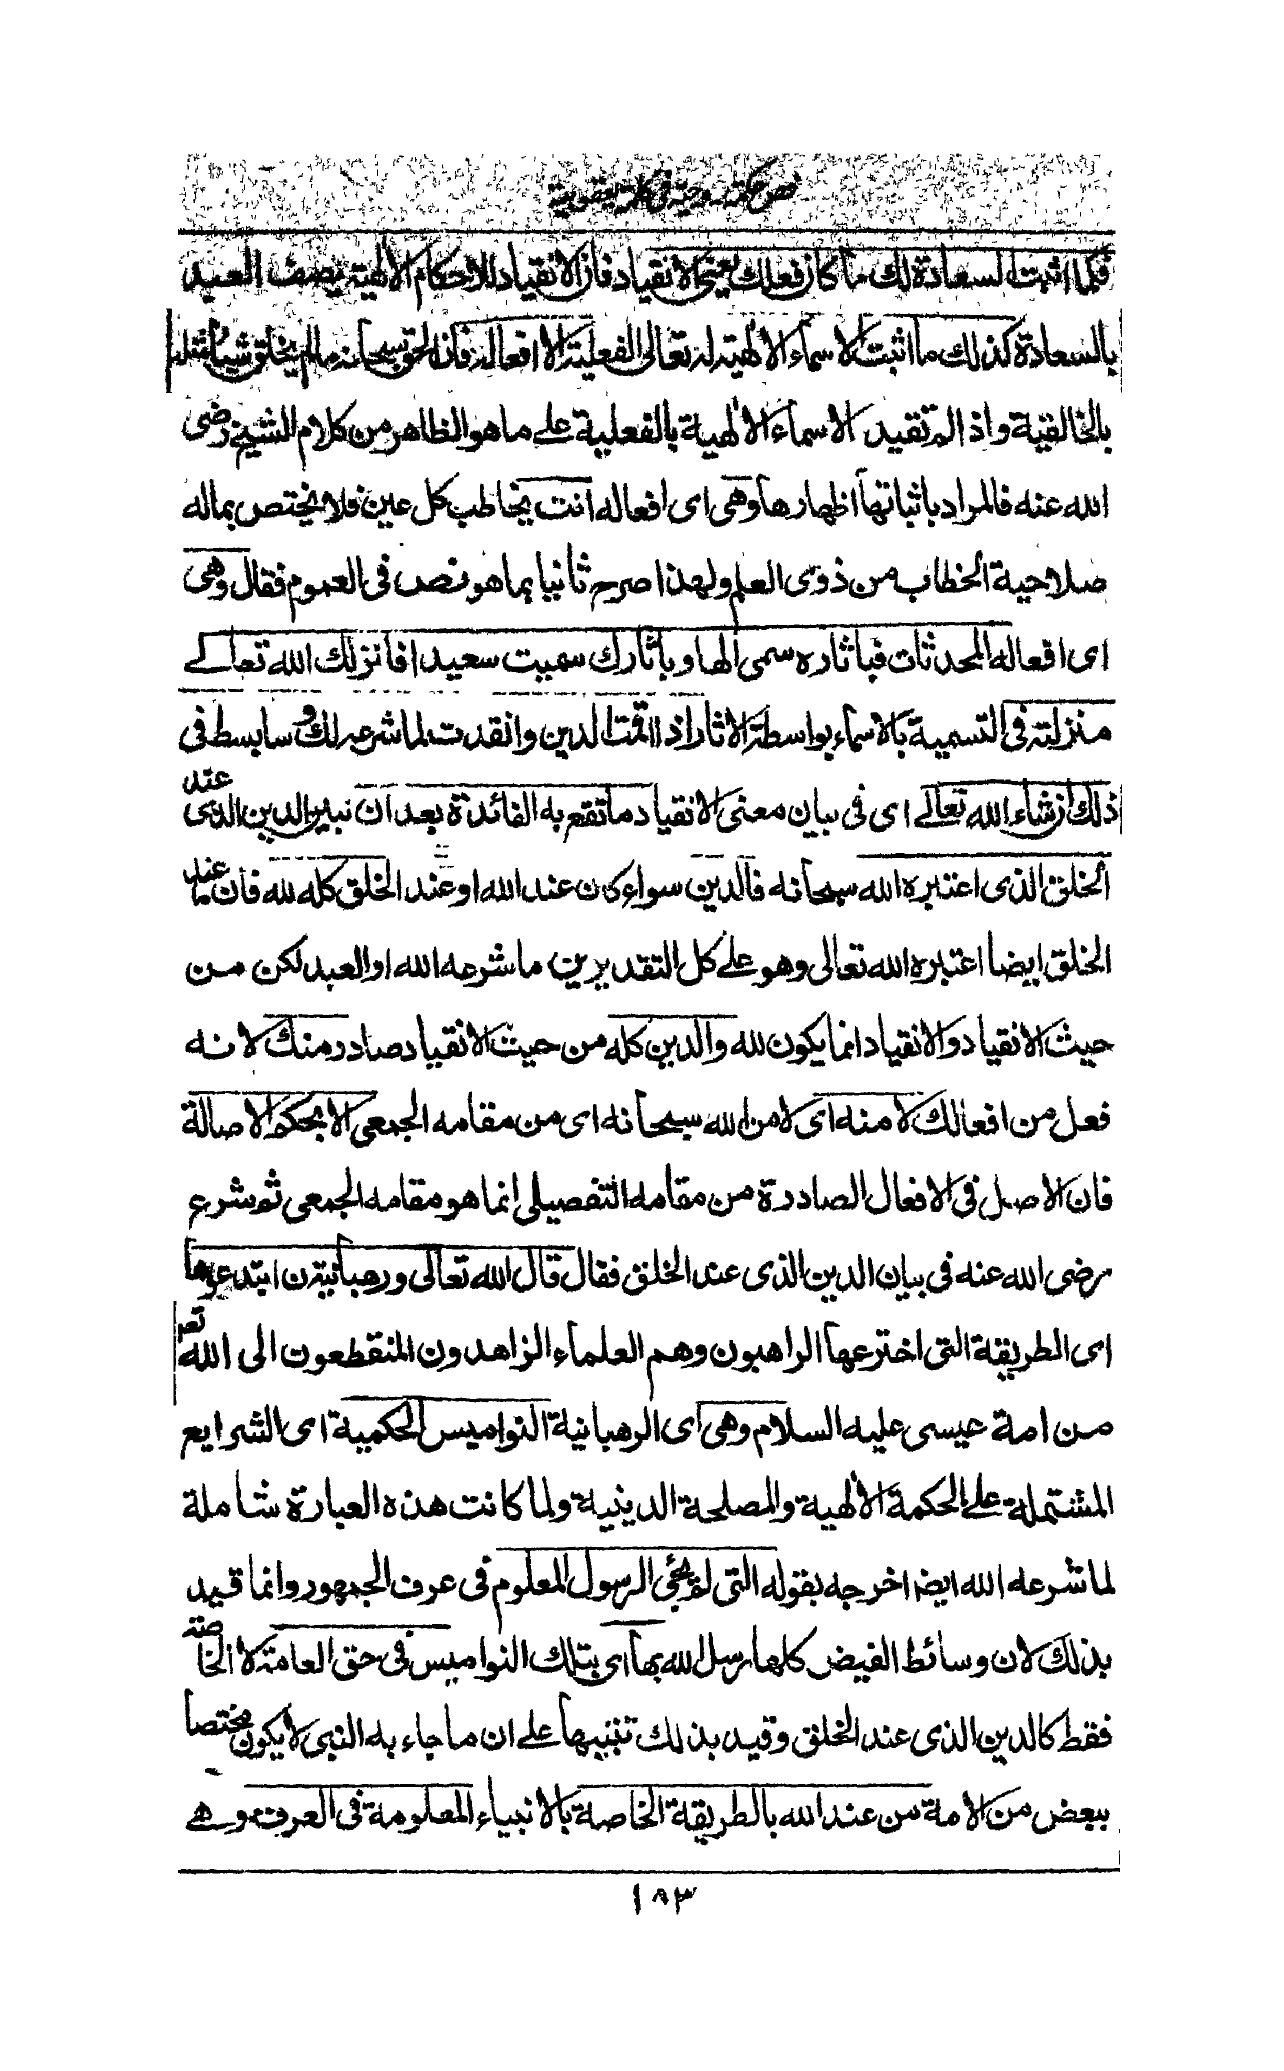 فص حكمة روحية في كلمة يعقوبية
فكما اثبت السعادة لك ما كان فعلك يعني الانقياد فان الانقياد للاحكام الالهية يصف العبد
بالسعادة كذلك ما اثبت الاسماء الالهية له تعالى الفعلية الا افعاله فان الحق سبحانه مالم يخلق شيئا
بالخالقية واذا لم تقيد الاسماء الالهية بالفعلية على ما هو الظاهر من كلام الشيخ رضى
الله عنه فالمراد باثباتها اظهارها وهى اى افعاله انت يخاطب كل عين فلا يختص بماله
صلاحية الخطاب من ذوى العلم ولهذا صرح ثانيا بما هو نص فى العموم فقال وهى
اى افعاله المحدثات فباثاره سمى الها وباثارك سميت سعيدا فانزلك الله تعالے
منزلته فى التسمية بالاسماء بواسطة الاثار اذا اقمت الدين وانقدت لما شرعه لك و سابسط فى
ذلك ان شاء الله تعالے اى فى بيان معنى الانقياد ما تقع به الفائدة بعد ان نبين الدين الذى عند
الخلق الذى اعتبره الله سبحانه فالدين سواء كان عند الله او عند الخلق كله لله فان ما عند
الخلق ايضا اعتبره الله تعالى وهو على كل التقديرين ما شرعه الله او العبد لكن من
حيث الانقياد والانقياد انما يكون لله والدين كله من حيث الانقياد صادر منك لا نه
فعل من افعالك لا منه اى لا من الله سبحانه اى من مقامه الجمعى الا بحكم الاصالة
فان الاصل فى الافعال الصادرة من مقامه التفصيلى انما هو مقامه الجمعى ثم شرع
رضى الله عنه فى بيان الدين الذى عند الخلق فقال قال الله تعالى ورهبانية ن ابتدعوها
اى الطريقة التى اخترعها الراهبون وهم العلماء الزاهدون المنقطعون الى الله تعہ
من امة عيسى عليه السلام وهى اى الرهبانية النواميس الحكمية اى الشرايع
المشتملة على الحكمة الالهية والمصلحة الدينية ولما كانت هذه العبارة شاملة
لما شرعه الله ايضا اخرجه بقوله التى لم يجئ الرسول المعلوم فى عرف الجمهور وانما قيد
بذلك لان وسائط الفيض كلها رسل الله بها اى بتلك النواميس فى حق العامة لا الخاصة
فقط كالدين الذى عند الخلق وقيد بذلك تنبيها على ان ما جاء به النبى لا يكون مختصا
ببعض من الامة من عند الله بالطريقة الخاصة بالانبياء المعلومة فى العرف وهے
١٨٣